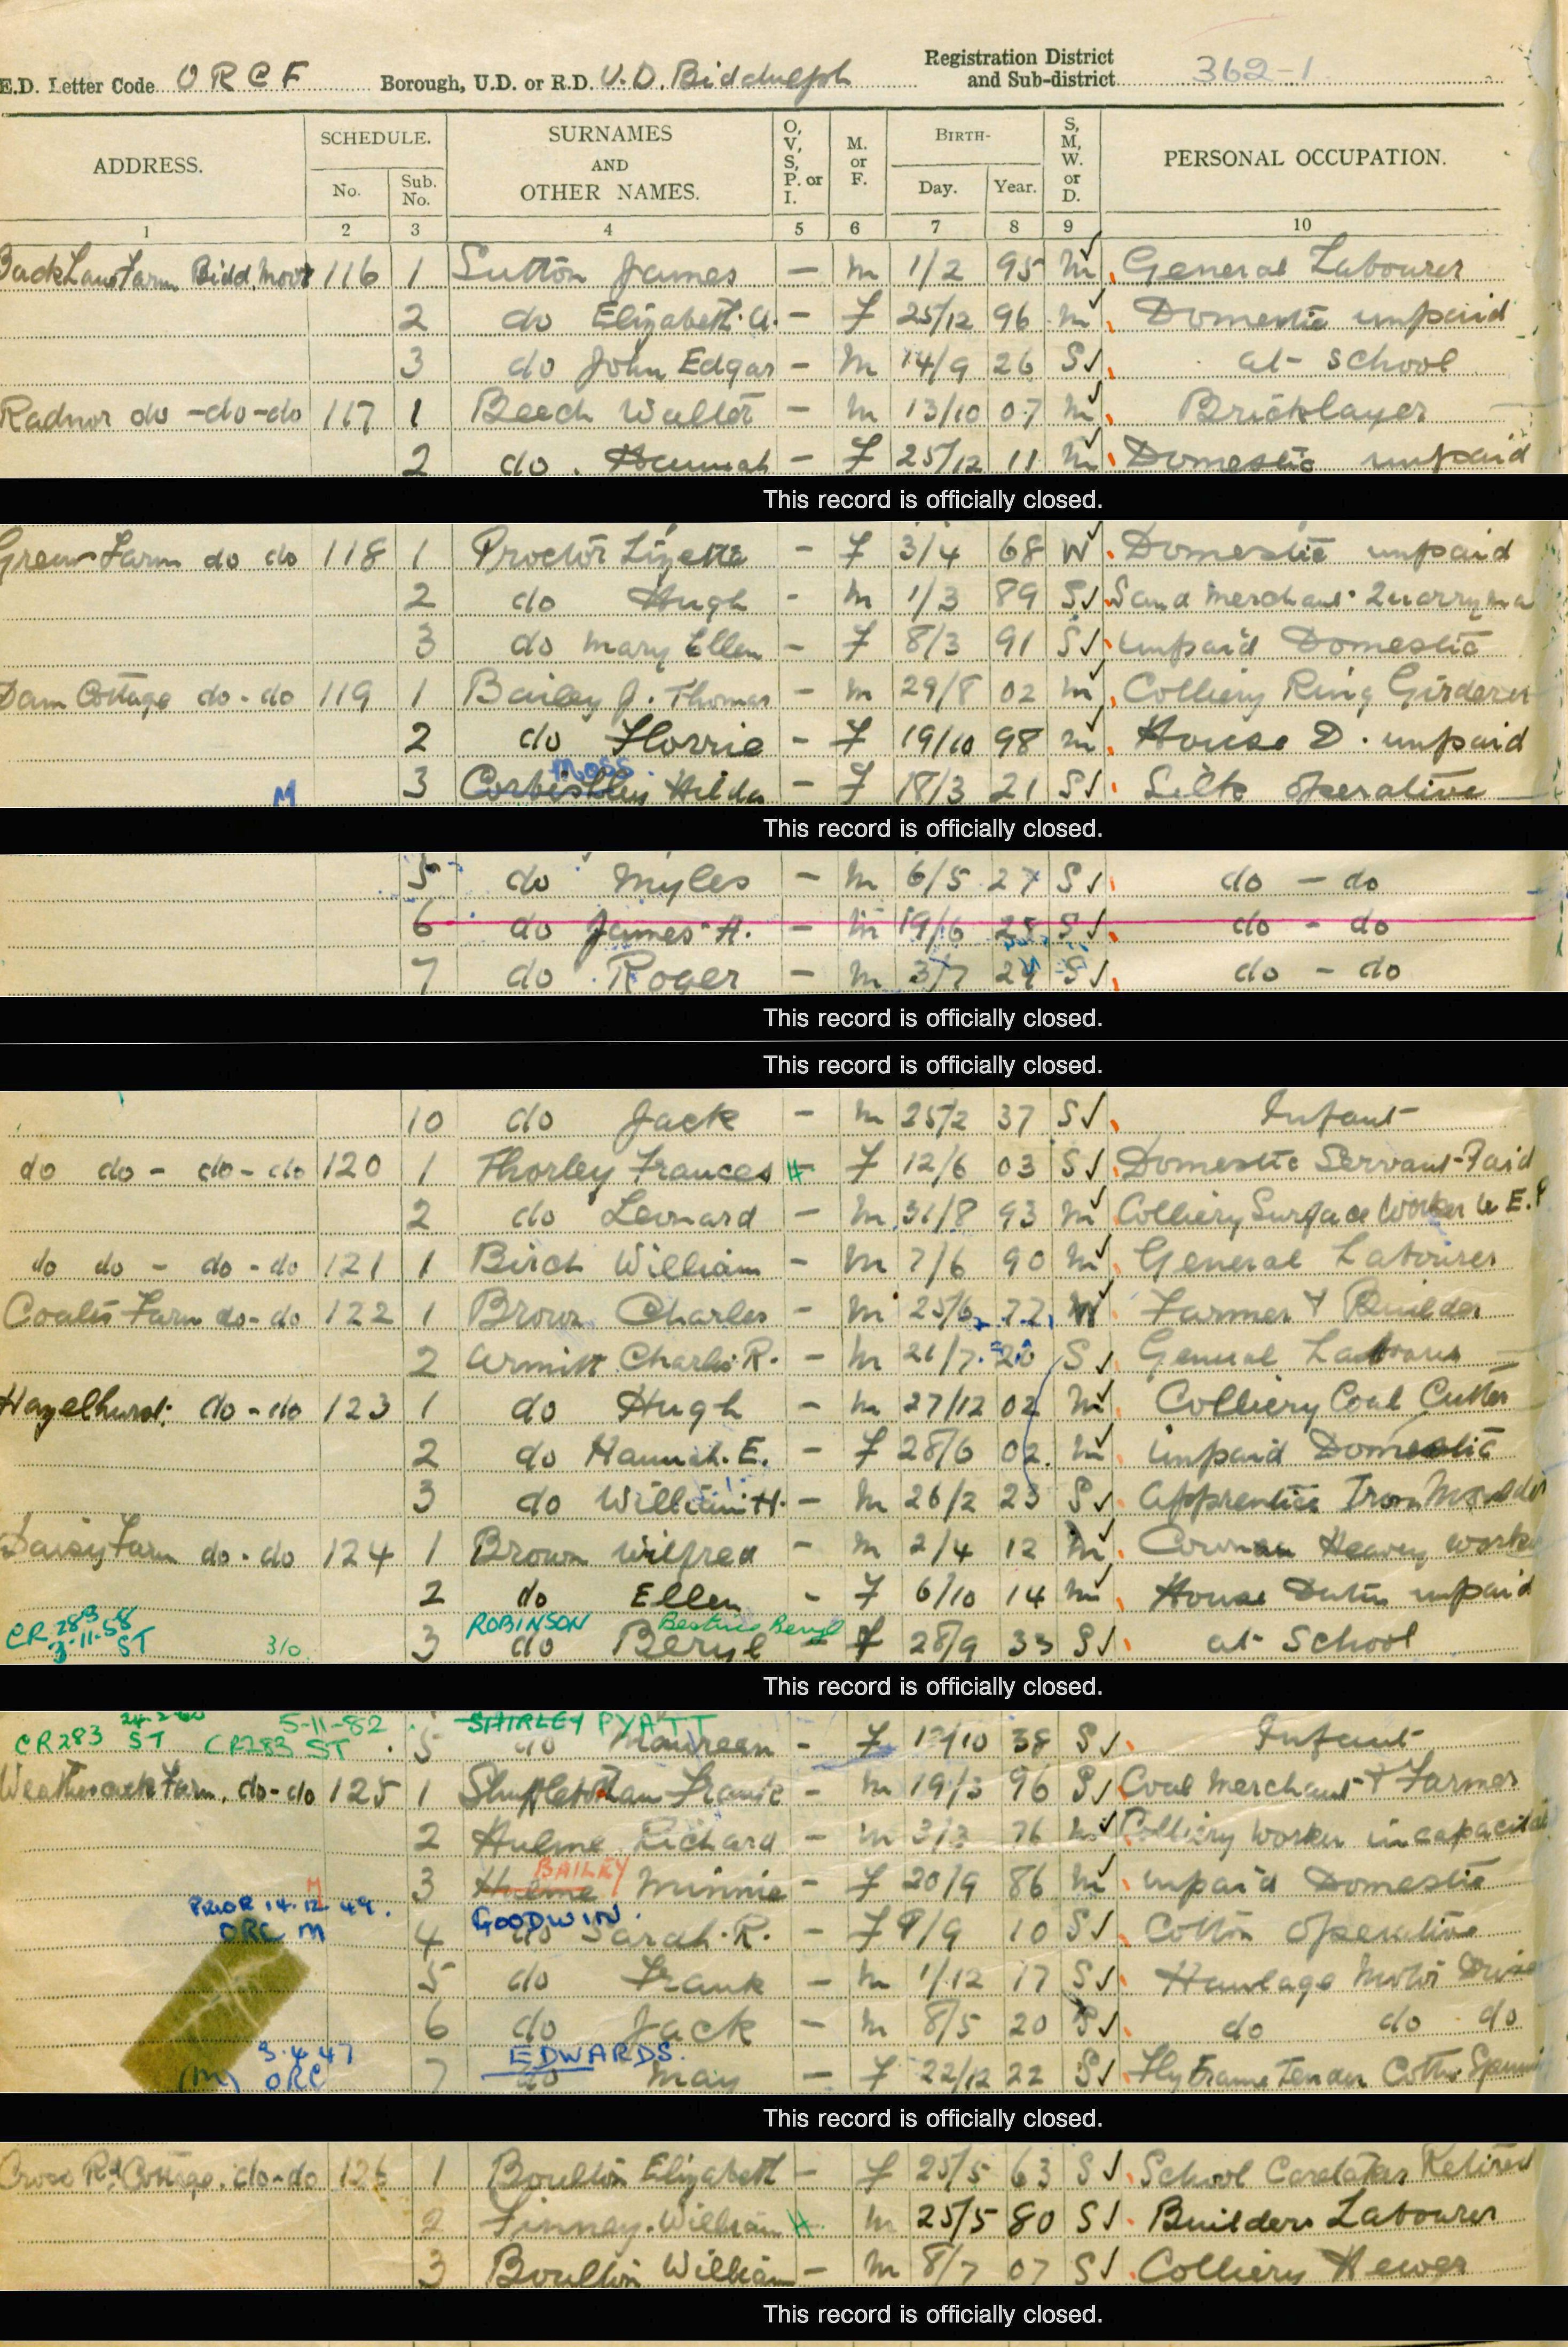 E.D. Letter Code ORCF Borough, U.D. or R.D. U.D. Biddulph Registration District and Sub-district 362-1
ADDRESS. SCHEDULE. No. Sub. No. SURNAMES AND OTHER NAMES. O, V, S, P. or I. M. or F. BIRTH- Day. Year. S, M, W. or D. PERSONAL OCCUPATION.
1 2 3 4 5 6 7 8 9 10
Back Lane Farm Bidd. Moor 116 1 Sutton James – M 1/2 95 M General Labourer
2 do Elizabeth. A. – F 25/12 96 M Domestic unpaid
3 do John Edgar – M 14/9 26 S at school
Radnor do -do-do 117 1 Beech Walter – M 13/10 07 M Bricklayer
2 do. Hannah – F 25/12 11 M Domestic unpaid
This record is officially closed.
Green Farm do do 118 1 Proctor Lizette – F 3/4 68 W Domestic unpaid
2 do Hugh - M 1/3 89 S Sand Merchant
3 do Mary Ellen – F 8/3 91 S unpaid Domestic
Dam Cottage do-do 119 1 Bailey J. Thomas – M 29/8 02 M Colliery Ring Girderer
2 do Florrie – F 19/10 98 M House D. unpaid
MOSS
M 3 Corbishley Hilda – F 18/3 21 S Silk operative
This record is officially closed.
5 do Myles – M 6/5 27 S do – do
6 do James A. – M 19/6 28 S do - do
7 do Roger – M 3/7 29 S do - do
This record is officially closed.
This record is officially closed.
10 do Jack – M 25/2 37 S Infant
do do - do-do 120 1 Thorley Frances H F 12/6 03 S Domestic Servant-Paid
2 do Leonard – M 31/8 93 M Colliery Surface Worker
do do - do-do 121 1 Birch William – M 7/6 90 M General Labourer
do-do 122 1 Brown Charles – M 25/6 77 W Farmer & Builder
2 Armitt Charles R. – M 21/7 20 S General Labourer
Hazelhurst do-do 123 1 do Hugh – M 27/12 02 M Colliery Coal Cutter
2 do Hannah. E. – F 28/6 02 M unpaid Domestic
3 do William H. – M 26/2 23 S Apprentice Iron Moulder
Daisy Farm do-do 124 1 Brown Wilfred – M 2/4 12 M Heavy worker
2 do Ellen - F 6/10 14 M House Duties unpaid
CR 283 3-11-58 ST 3/0 ROBINSON Beatrice Beryl
3 do Beryl – F 28/9 33 S at School
This record is officially closed.
CR283 ST CR283 ST 5-11-82 SHIRLEY PYATT
5 do Maureen - F 10 38 S Infant
Weathercock Farm, do-do 125 1 Shufflebotham Frank – M 19/3 96 S Coal Merchant & Farmer
2 Hulme Richard – M 3/3 76 M Colliery worker incapacitated
BAILEY
M 3 Hulme Minnie – F 20/9 86 M unpaid Domestic
PRIOR 14.12.49. ORC M GOODWIN.
4 do Sarah. R. – F 9/9 10 S Cotton operative
5 do Frank – M 1/12 17 S Haulage Motor Driver
6 do Jack – M 8/5 20 S do do do
3.4.47 (M) ORC EDWARDS.
7 do May – F 22/12 22 S Fly Frame Tender Cotton Spinning
This record is officially closed.
Cross Rd. Cottage. do-do 126 1 Boulton Elizabeth – F 25/5 63 S School Caretaker Retired
2 Finney. William H M 25/5 80 S Builders Labourer
3 Boulton William – M 8/7 07 S Colliery Hewer
This record is officially closed.